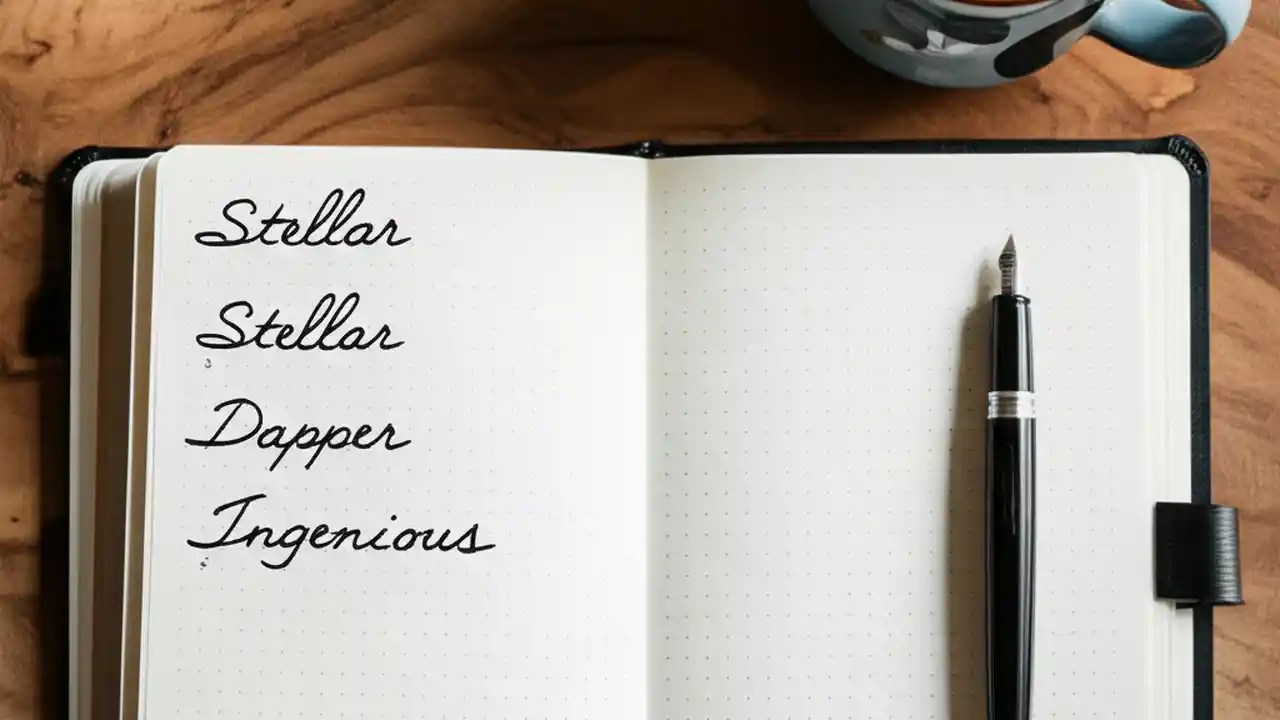 Stellar
Stellar
Dapper
Ingenious